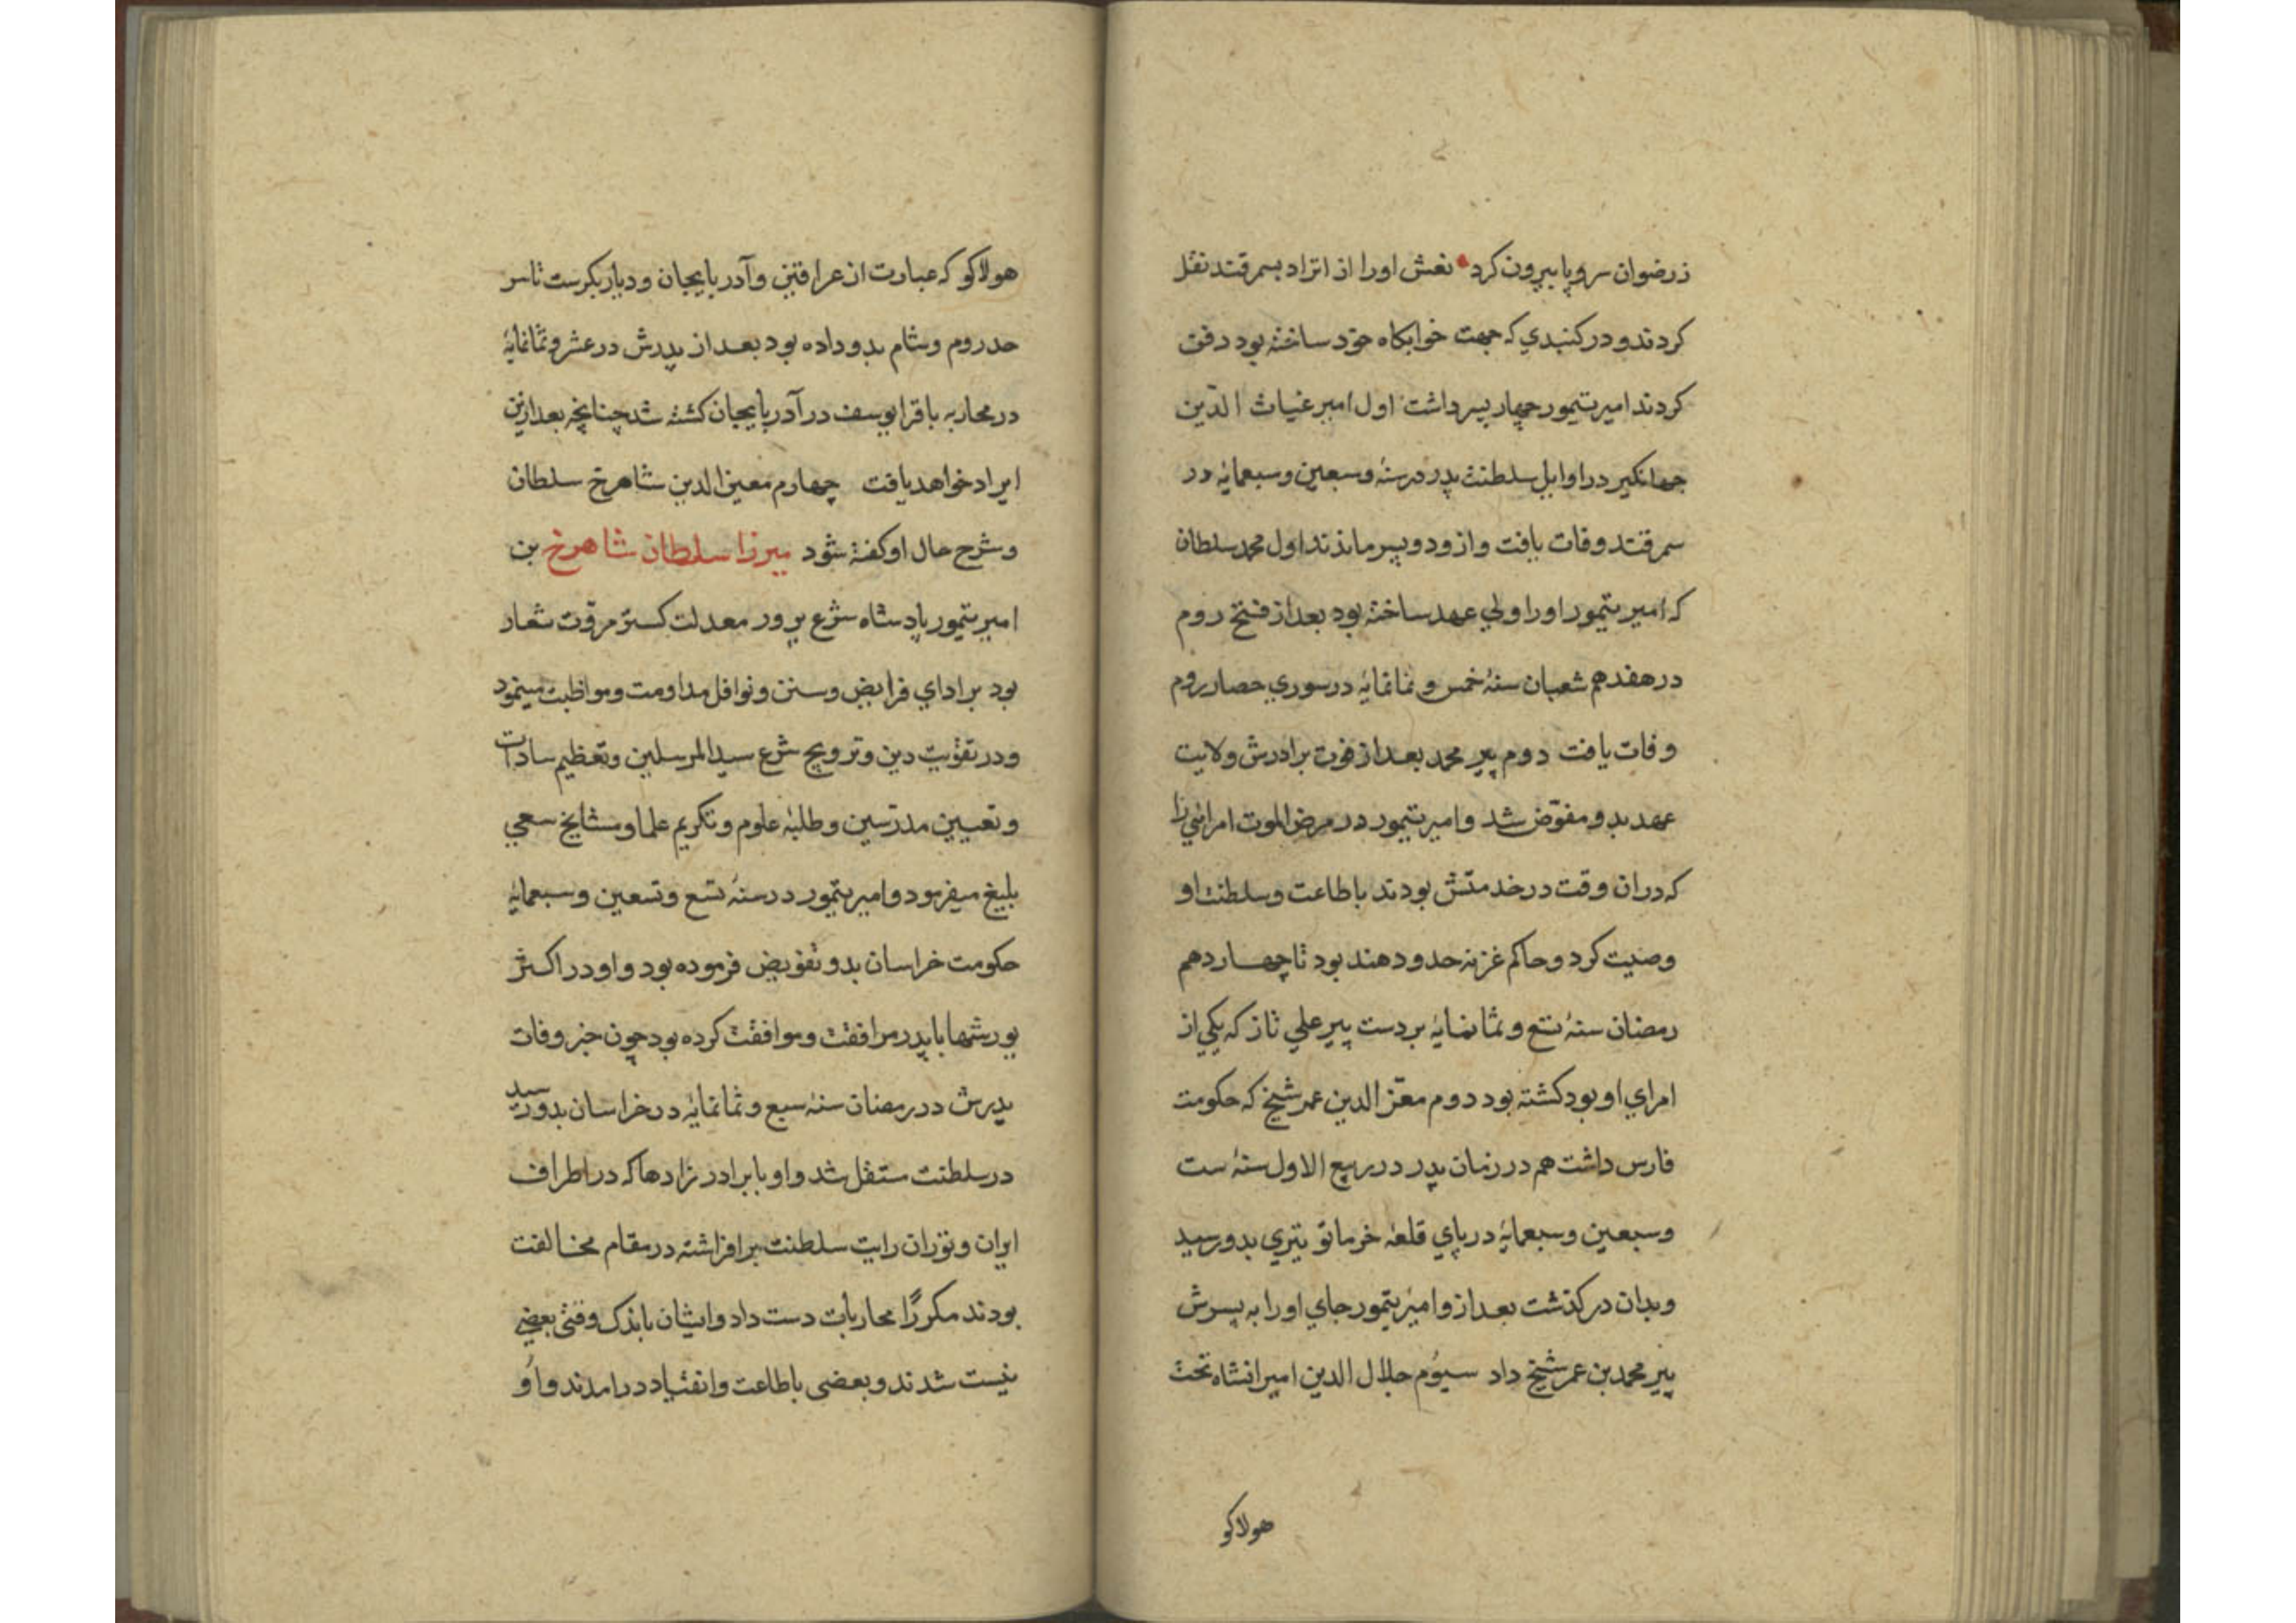 زرضوان سروپا بیرون کرد • نعش اورا از اترار بسمرقند نقل
کردند و در کنبدي که جهت خوابکاه خود ساخته بود دفن
کردند امیر تیمور چهار پسر داشت اول امیر غیاث الدّین
جهانکیر در اوایل سلطنت پدر در سنهٔ وسبعین وسبعمایهٔ در
سمرقند وفات یافت وازو دو پسر ماندند اول محمد سلطان
که امیر تیمور اورا ولي عهد ساخته بود بعد از فتح روم
در هفدهم شعبان سنهٔ خمس و ثمانمایهٔ در سوري حصار روم
وفات یافت دوم پیر محمد بعد از فوت برادرش ولایت
عهد بدو مفوّض شد وامیر تیمور در مرض الموت امرائي را
که دران وقت در خدمتش بودند باطاعت وسلطنت او
وصیت کرد وحاکم غزنه حدود هند بود تا چهاردهم
رمضان سنهٔ تسع و ثمانمایهٔ بر دست پیر علي تاز که یکي از
امراي او بود کشته بود دوم معزّ الدین عمر شیخ که حکومت
فارس داشت هم در زمان پدر در ربیع الاول سنهٔ ست
وسبعین وسبعمایهٔ در پاي قلعهٔ خرماتو تیري بدو رسید
وبدان درکذشت بعد ازو امیر تیمور جاي اورا به پسرش
پیر محمد بن عمر شیخ داد سیوم جلال الدین امیرانشاه تخت
هولاکو
هولاکو که عبارت از عراقین وآدربایجان ودیار بکرست تا سر
حد روم وشام بدو داده بود بعد از پدرش در عشر وثمانمایهٔ
در محاربه با قرا یوسف در آدربایجان کشته شد چنانچه بعد ازین
ایراد خواهد یافت چهارم معین الدین شاهرخ سلطان
وشرح حال او کفته شود میرزا سلطان شاهرخ بن
امیر تیمور پادشاه شرع پرور معدلت کستر مروّت شعار
بود بر اداي فرایض وسنن ونوافل مداومت ومواظبت مینمود
ودر تقویت دین وترویج شرع سید المرسلین وتعظیم سادات
وتعیین مدرّسین وطلبهٔ علوم وتکریم علما ومشایخ سعي
بلیغ میفرمود وامیر تیمور در سنهٔ تسع وتسعین وسبعمایهٔ
حکومت خراسان بدو تفویض فرموده بود واو در اکثر
یورشها با پدر مرافقت وموافقت کرده بود چون خبر وفات
پدرش در رمضان سنهٔ سبع وثمانمایهٔ در خراسان بدو رسید
در سلطنت مستقل شد واو با برادر زادها که در اطراف
ایران وتوران رایت سلطنت برافراشته در مقام مخالفت
بودند مکررًا محاربات دست داد وایشان باندک وقتي بعضي
نیست شدند وبعضي باطاعت وانقیاد درامدند واو